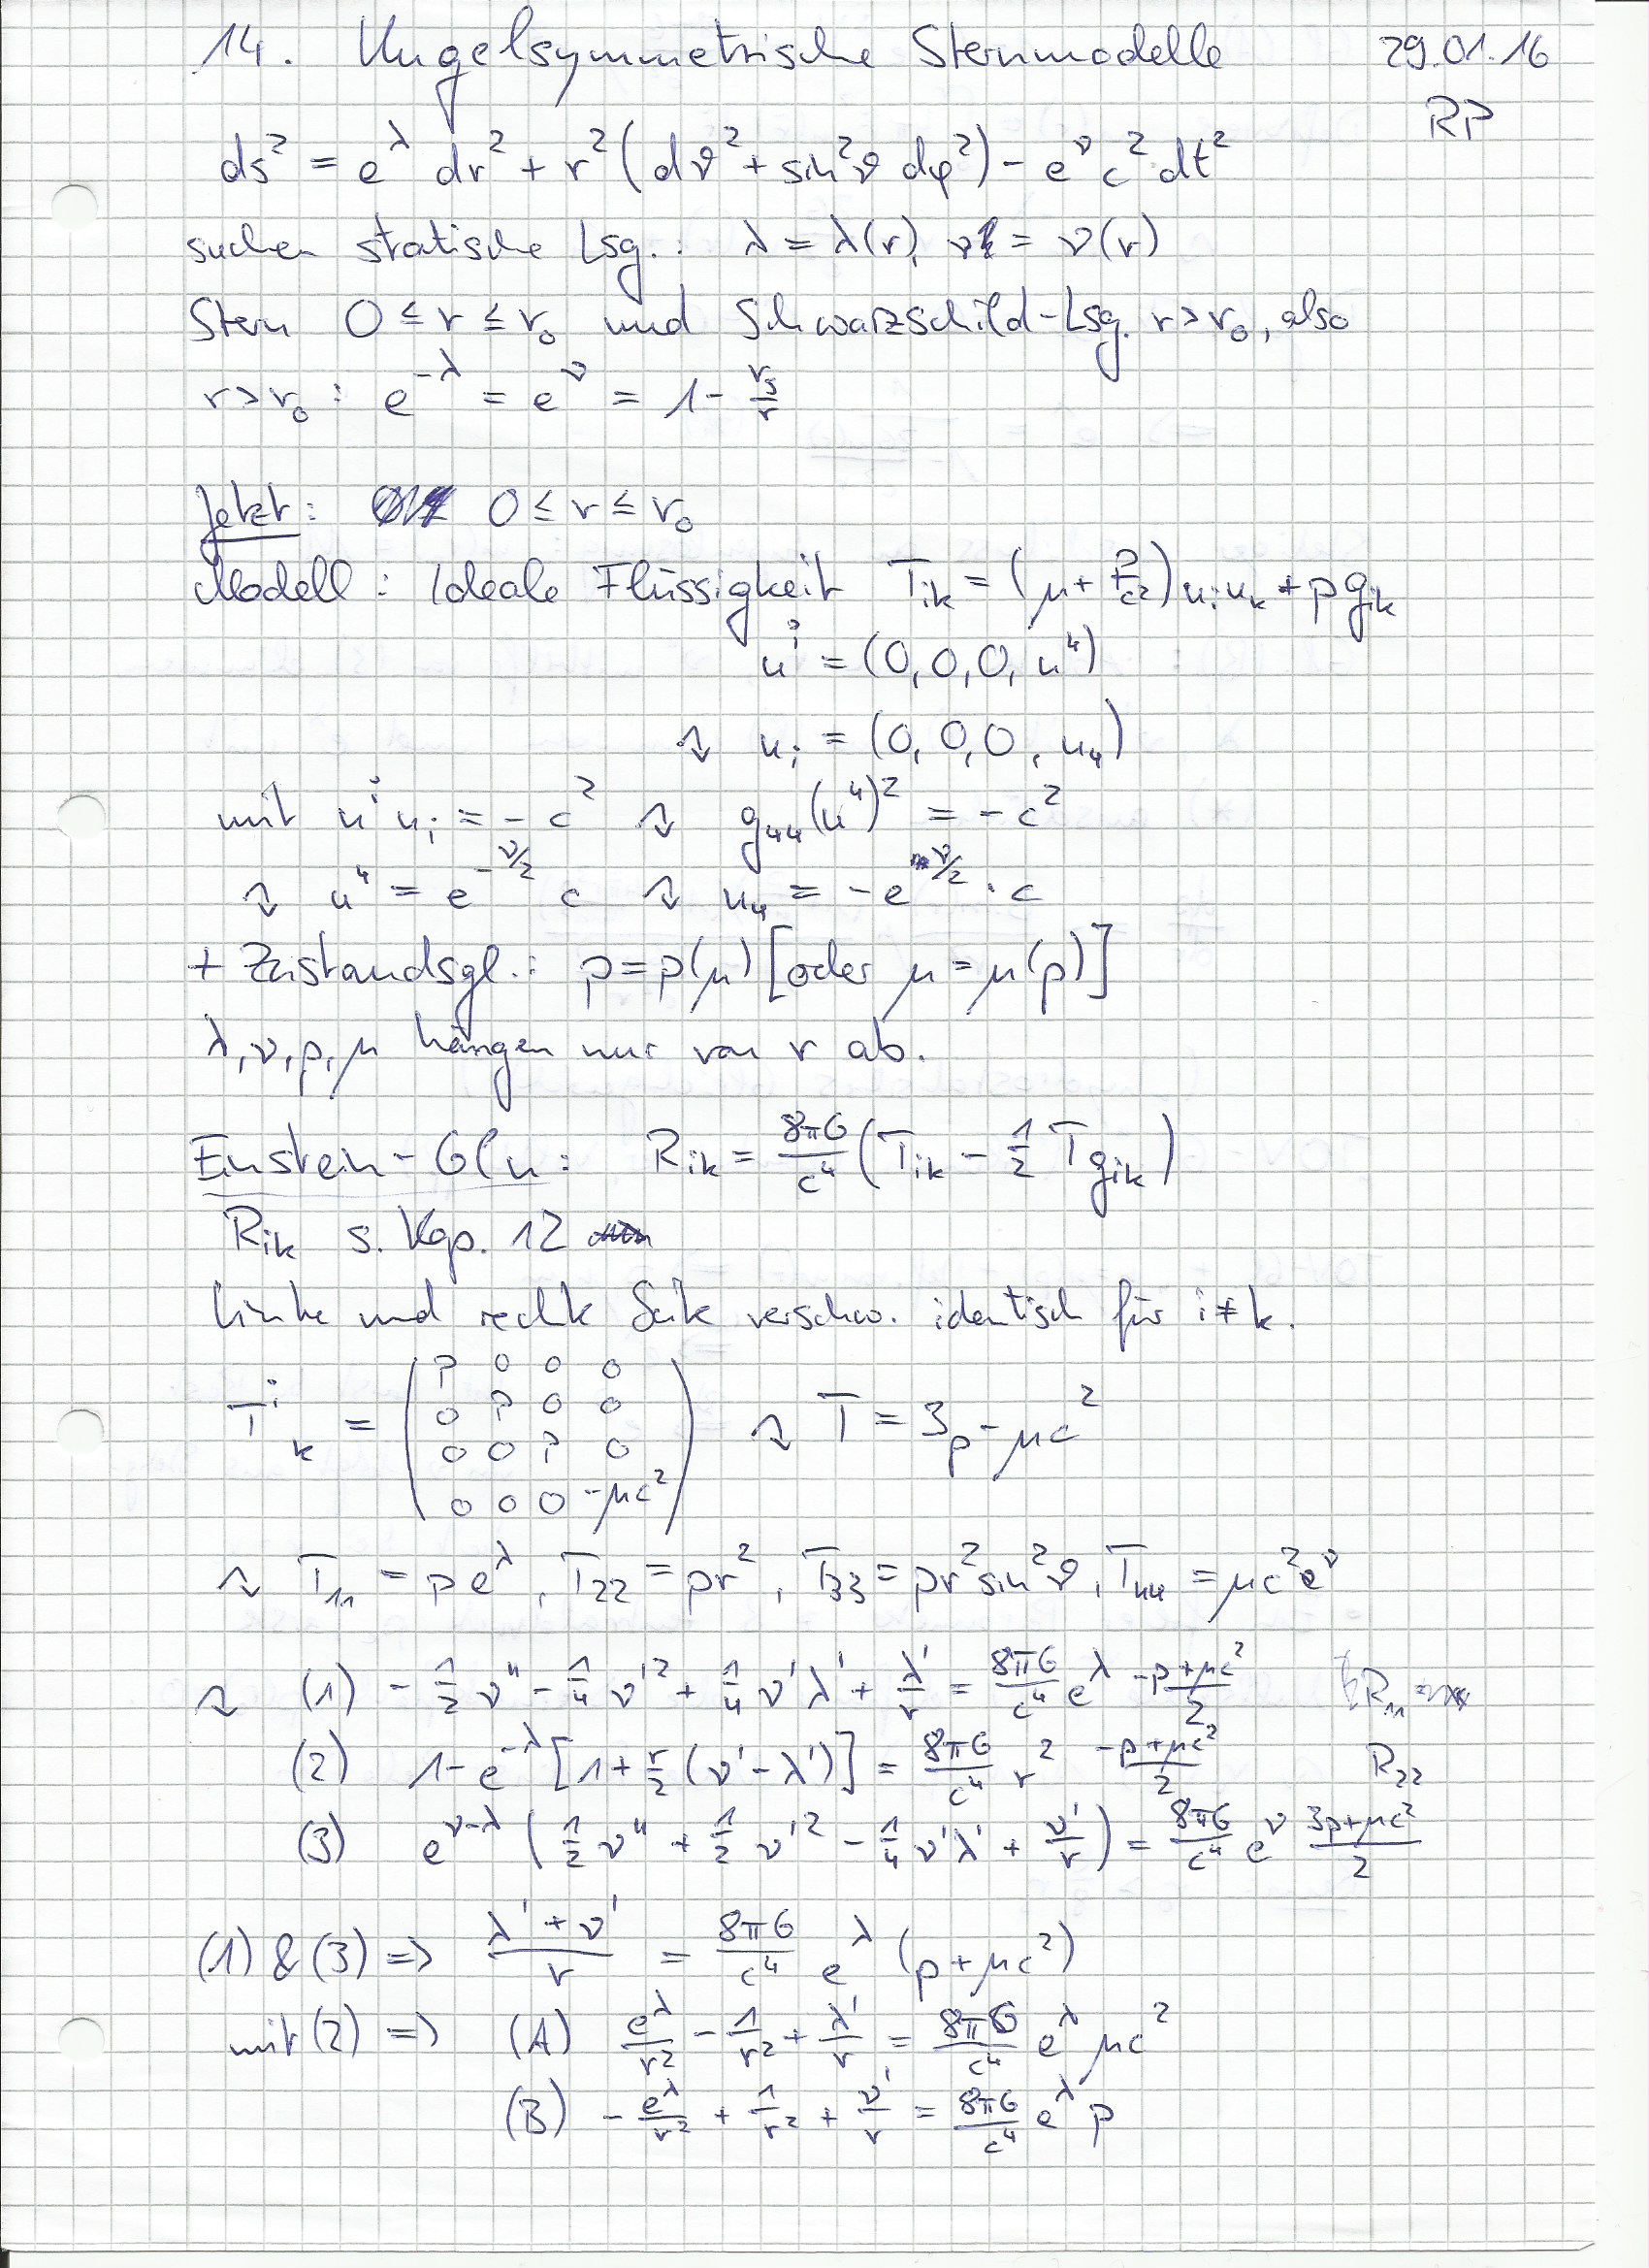 14. Kugelsymmetrische Sternmodelle 29.01.16
RP
ds² = e^λ dr² + r²(dϑ² + sin²ϑ dφ²) - e^ν c² dt²
suchen statische Lsg.: λ = λ(r), ν = ν(r)
Stern 0 ≤ r ≤ r₀ und Schwarzschild-Lsg. r > r₀, also
r > r₀: e^-λ = e^ν = 1 - r_s/r
Jetzt: 0 ≤ r ≤ r₀
Modell: Ideale Flüssigkeit T_ik = (μ + p/c²) u_i u_k + p g_ik
u^i = (0, 0, 0, u⁴)
↷ u_i = (0, 0, 0, u₄)
mit u^i u_i = -c² ↷ g₄₄(u⁴)² = -c²
↷ u⁴ = e^(-ν/2) c ↷ u₄ = -e^(ν/2) · c
+ Zustandsgl.: p = p(μ) [oder μ = μ(p)]
λ, ν, p, μ hängen nur von r ab.
Einstein-Gln: R_ik = 8πG/c⁴ (T_ik - 1/2 T g_ik)
R_ik s. Kap. 12
linke und rechte Seite verschw. identisch für i ≠ k.
T^i_k = (p 0 0 0
0 p 0 0
0 0 p 0
0 0 0 -μc²) ↷ T = 3p - μc²
↷ T₁₁ = p e^λ, T₂₂ = pr², T₃₃ = pr² sin²ϑ, T₄₄ = μc² e^ν
↷ (1) - 1/2 ν'' - 1/4 ν'² + 1/4 ν'λ' + λ'/r = 8πG/c⁴ e^λ (-p+μc²)/2 R₁₁
(2) 1 - e^-λ [1 + r/2 (ν' - λ')] = 8πG/c⁴ r² (-p+μc²)/2 R₂₂
(3) e^(ν-λ) (1/2 ν'' + 1/2 ν'² - 1/4 ν'λ' + ν'/r) = 8πG/c⁴ e^ν (3p+μc²)/2
(1) & (3) => (λ' + ν')/r = 8πG/c⁴ e^λ (p + μc²)
mit (2) => (A) e^λ/r² - 1/r² + λ'/r = 8πG/c⁴ e^λ μc²
(B) - e^λ/r² + 1/r² + ν'/r = 8πG/c⁴ e^λ p